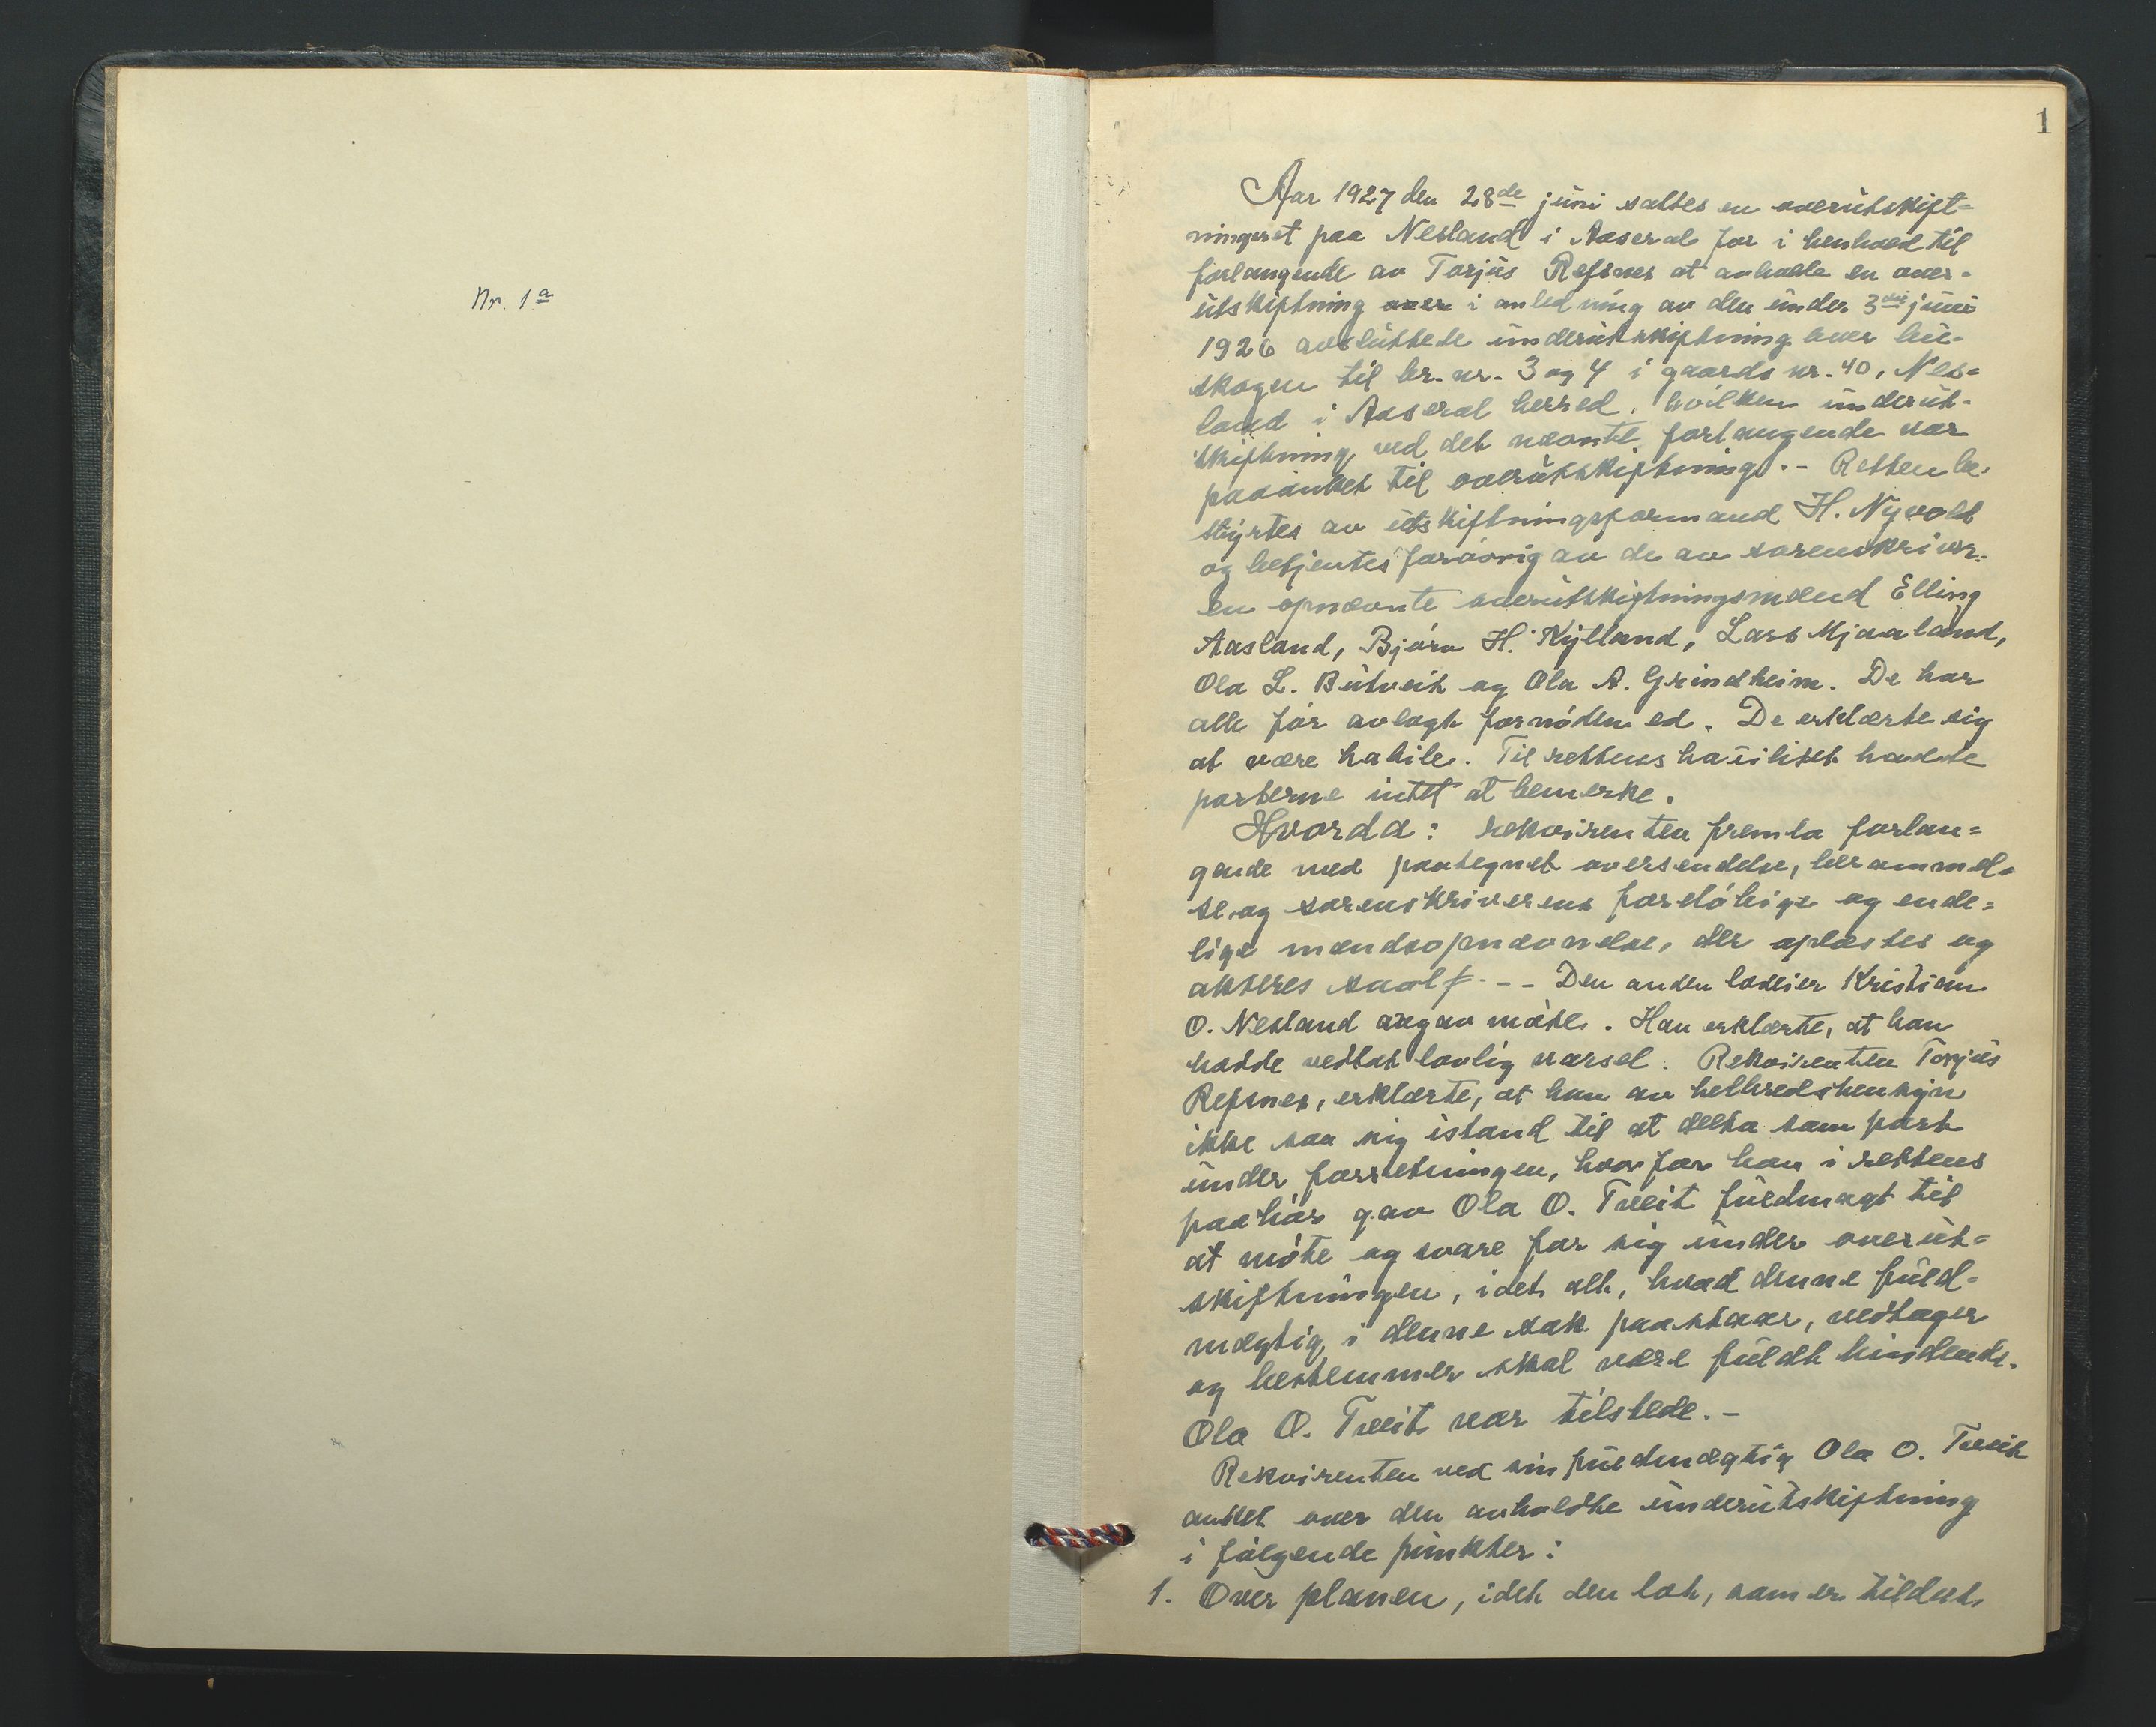 Nr. 1a
1
Aar 1927 den 28de juni sattes en overutskift-
ningsret paa Nesland i Aaseral for i henhold til
forlangende av Torjus Refsnes at avholde en over-
utskiftning over i anledning av den under 3die juni
1926 avsluttede underutskiftning over hei-
skogen til br. nr. 3 og 4 i gaards nr. 40, Nes-
land i Aaseral herred, hvilken underut-
skiftning ved det nævnte forlangende var
paaanket til overutskiftning. - Retten be-
styrtes av utskiftningsformand H. Nyvold
og betjentes forøvrig av de av sorenskriver-
en opnævnte overutskiftningsmænd Elling
Aasland, Bjørn H. Kylland, Lars Mjaaland,
Ola L. Butveit og Ola A. Grindheim. De har
alle før avlagt fornøden ed. De erklærte sig
at være habile. Til rettens habilitet hadde
parterne intet at bemerke.
Hvorda: rekvirenten fremla forlan-
gende med paategnet oversendelse, berammel-
se og sorenskriverens foreløbige og ende-
lige mændsopnævnelse, der oplæstes og
akteres saal f. -- Den anden lodeier Kristian
O. Nesland angav møte. Han erklærte, at han
hadde vedtat lovlig varsel. Rekvirenten Torjus
Refsnes, erklærte, at han av helbredshensyn
ikke saa sig istand til at delta som part
under forretningen, hvorfor han i rettens
paahør gav Ola O. Tveit fuldmagt til
at møte og svare for sig under overut-
skiftningen, idet alt, hvad denne fuld-
mægtig i denne sak paastaar, vedtager
og bestemmer skal være fuldt bindende.
Ola O. Tveit var tilstede. -
Rekvirenten ved sin fuldmægtig Ola O. Tveit
anket over den avholdte underutskiftning
i følgende punkter:
1. Over planen, idet den lot, som er tildelt